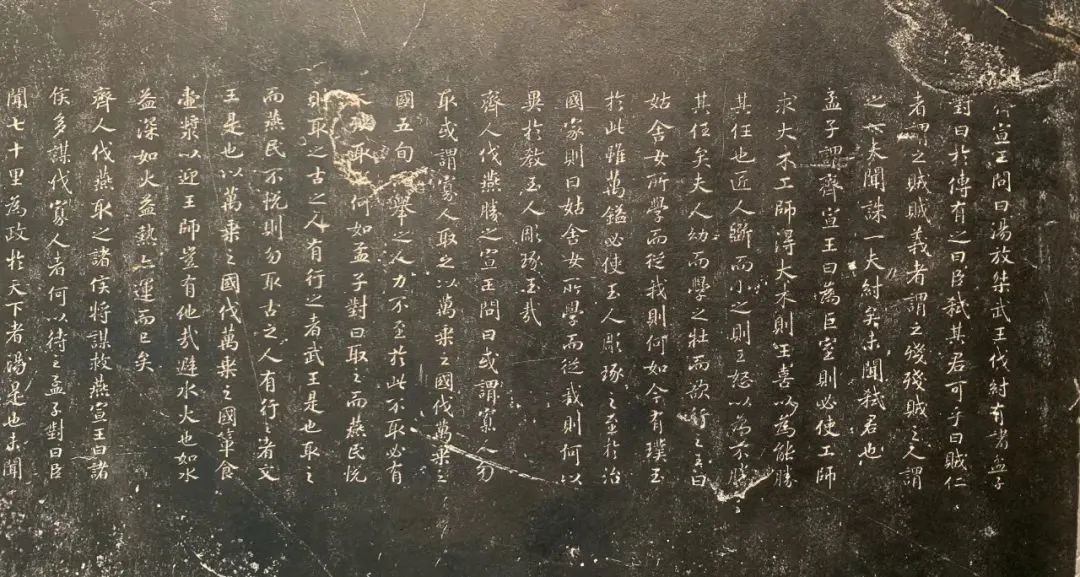 齊宣王問曰湯放桀武王伐紂有諸孟子
對曰於傳有之曰臣弒其君可乎曰賊仁
者謂之賊賊義者謂之殘殘賊之人謂
之一夫聞誅一夫紂矣未聞弒君也
孟子謂齊宣王曰為巨室則必使工師
求大木工師得大木則王喜以為能勝
其任也匠人斲而小之則王怒以為不勝
其任矣夫人幼而學之壯而欲行之王曰
姑舍女所學而從我則何如今有璞玉
於此雖萬鎰必使玉人彫琢之至於治
國家則曰姑舍女所學而從我則何以
異於教玉人彫琢玉哉
齊人伐燕勝之宣王問曰或謂寡人勿
取或謂寡人取之以萬乘之國伐萬乘之
國五旬而舉之人力不至於此不取必有
天殃取之何如孟子對曰取之而燕民悅
則取之古之人有行之者武王是也取之
而燕民不悅則勿取古之人有行之者文
王是也以萬乘之國伐萬乘之國簞食
壺漿以迎王師豈有他哉避水火也如水
益深如火益熱亦運而已矣
齊人伐燕取之諸侯將謀救燕宣王曰諸
侯多謀伐寡人者何以待之孟子對曰臣
聞七十里為政於天下者湯是也未聞